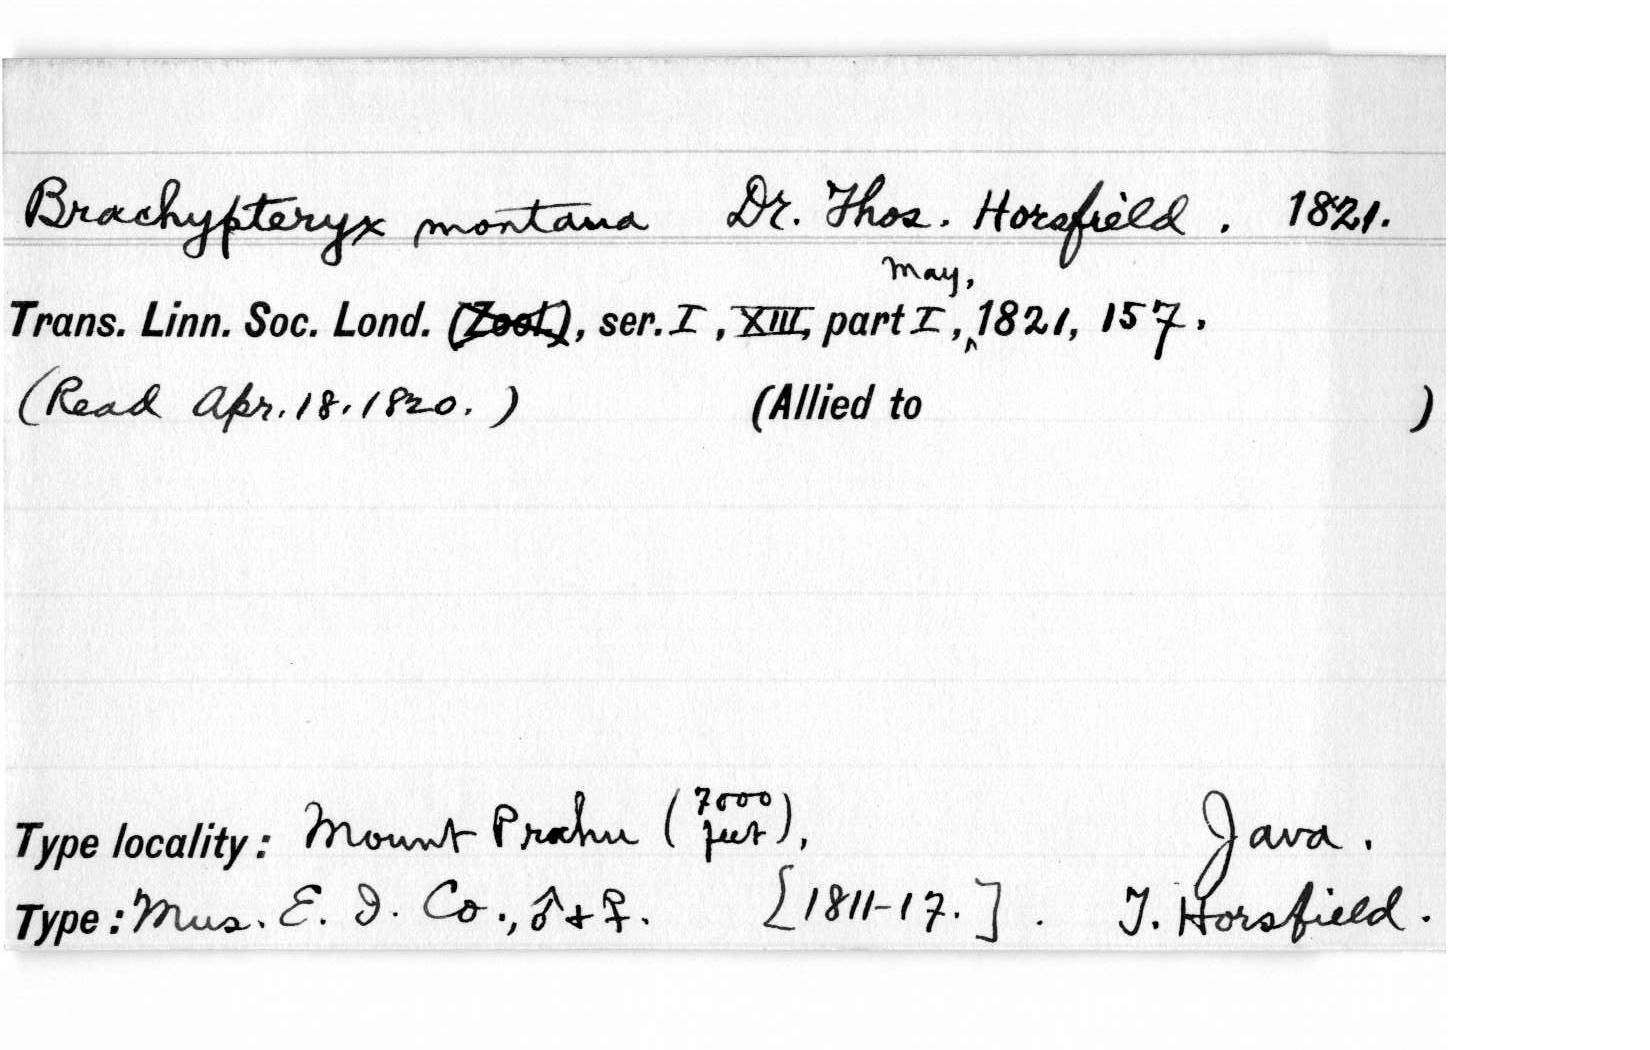 Brachypteryx montana Dr. Thos. Horsfield. 1821.
Trans. Linn. Soc. Lond. (Zool.), ser. I, XIII, part I, May, 1821, 157.
(Read Apr. 18. 1820.) (Allied to )
Type locality: Mount Prahu (7000 feet), Java.
Type: Mus. E. I. Co., ♂ + ♀. [1811-17.]. T. Horsfield.